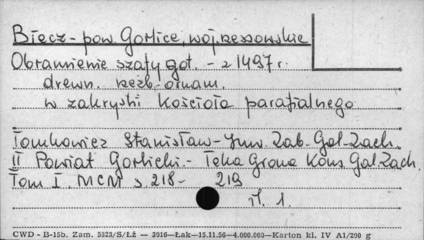 Biecz - pow Gorlice, woj. rzeszowskie
Obramienie szafy got. - z 1497 r.
drewn. rzeźb. ornam.
w zakrystii Kościoła parafialnego
Tomkowicz Stanisław - Inw. Zab. Gal. Zach.
II Powiat Gorlicki. - Teka Grona Kons. Gal. Zach.
Tom I. MCM s. 218 - 219
il. 1.
CWD - B-15b. Zam. 5523/S/Łż — 3916—Łak—15.11.56—4.000.000—Karton kl. IV A1/200 g